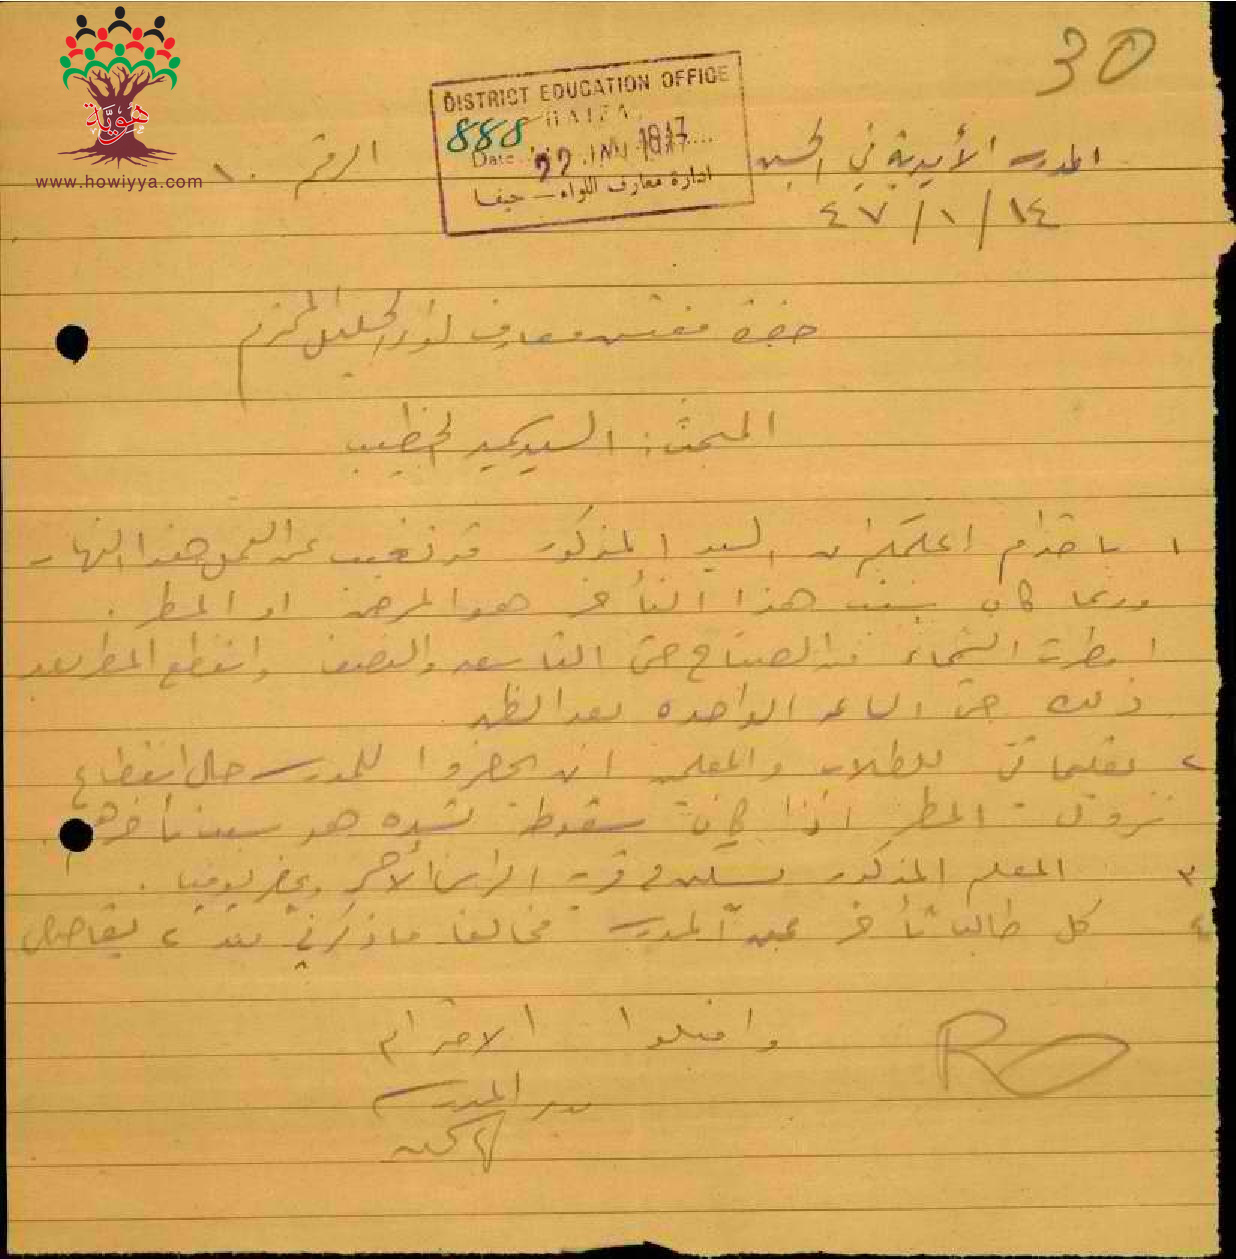 30
هوية
www.howiyya.com
DISTRICT EDUCATION OFFICE
HAIFA
888
Date 22 JAN 1947
ادارة معارف اللواء – حيفا
المدرسة الأميرية في الرقم ١٠
١٤/١/٤٧
حضرة مفتش معارف لواء الجليل المحترم
المبحث: السيد الخطيب
١ باحترام اعلمكم ان السيد المذكور قد تغيب عن العمل هذا النهار
وربما كان سبب هذا التأخر هو المرض او المطر.
امطرت السماء من الصباح حتى التاسعة والنصف وانقطع المطر بعد
ذلك حتى الساعة الواحدة بعد الظهر
٢ تعليماتي للطلاب والمعلمين ان يحضروا للمدرسة حال انقطاع
نزول المطر اذا كان سقوطه بشده هو سبب تأخرهم.
٣ المعلم المذكور يسكن في قرية الراس الأحمر ويحضر يوميا.
٤ كل طالب تأخر عن المدرسة مخالفا ما ذكر في بند ٢ يقاصص
واقبلوا الاحترام
مدير المدرسة